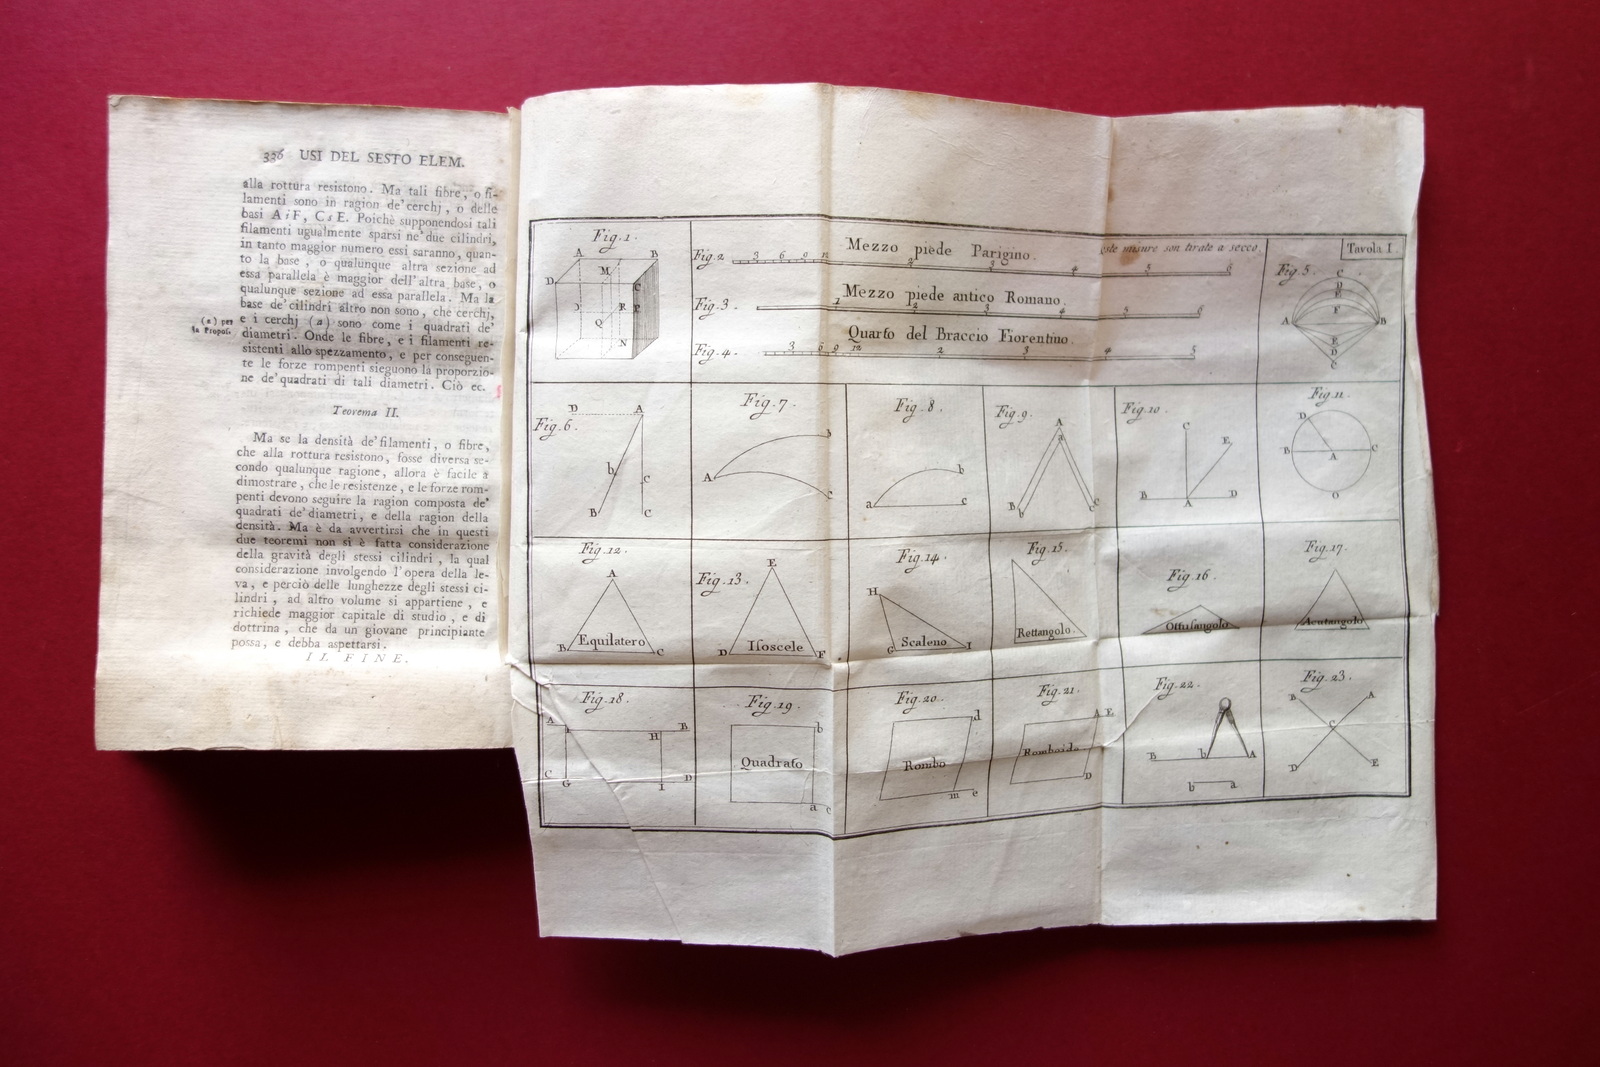 336 USI DEL SESTO ELEM.
alla rottura resistono. Ma tali fibre, o fi-
lamenti sono in ragion de'cerchj, o delle
basi A i F, C s E. Poichè supponendosi tali
filamenti ugualmente sparsi ne'due cilindri,
in tanto maggior numero essi saranno, quan-
to la base, o qualunque altra sezione ad
essa parallela è maggior dell'altra base, o
qualunque sezione ad essa parallela. Ma la
base de'cilindri altro non sono, che cerchj,
(a) per
la Propos.
e i cerchj (a) sono come i quadrati de'
diametri. Onde le fibre, e i filamenti re-
sistenti allo spezzamento, e per conseguen-
te le forze rompenti sieguono la proporzio-
ne de'quadrati di tali diametri. Ciò ec.
Teorema II.
Ma se la densità de'filamenti, o fibre,
che alla rottura resistono, fosse diversa se-
condo qualunque ragione, allora è facile a
dimostrare, che le resistenze, e le forze rom-
penti devono seguire la ragion composta de'
quadrati de'diametri, e della ragion della
densità. Ma è da avvertirsi che in questi
due teoremi non si è fatta considerazione
della gravità degli stessi cilindri, la qual
considerazione involgendo l'opera della le-
va, e perciò delle lunghezze degli stessi ci-
lindri, ad altro volume si appartiene, e
richiede maggior capitale di studio, e di
dottrina, che da un giovane principiante
possa, e debba aspettarsi.
IL FINE.
Tavola I
Fig. 1.
A B
D M C
R P
Q
N
Fig. 2 3 6 9 12 Mezzo piede Parigino. ste misure son tirate a secco.
2 3 4 5 6
Fig. 3 Mezzo piede antico Romano.
1 2 3 4 5 6
Quarto del Braccio Fiorentino.
Fig. 4. 3 6 9 12 2 3 4 5
Fig. 5
C
D
E
F
A B
E
D
C
Fig. 6.
D A
b
c
B C
Fig. 7.
A
b
c
Fig. 8.
a b
c
Fig. 9.
A
a
B b c C
Fig. 10.
C E
B A D
Fig. 11.
D
B A C
O
Fig. 12.
A
B Equilatero C
Fig. 13.
E
D Isoscele F
Fig. 14
H
G Scaleno I
Fig. 15.
Rettangolo.
Fig. 16
Ottusangolo
Fig. 17.
Acutangolo
Fig. 18
A B
H
C G I D
Fig. 19
b
Quadrato
a c
Fig. 20.
d
Rombo
m e
Fig. 21.
A E
Romboide
D
Fig. 22
B b A
b a
Fig. 23.
B A
C
D E